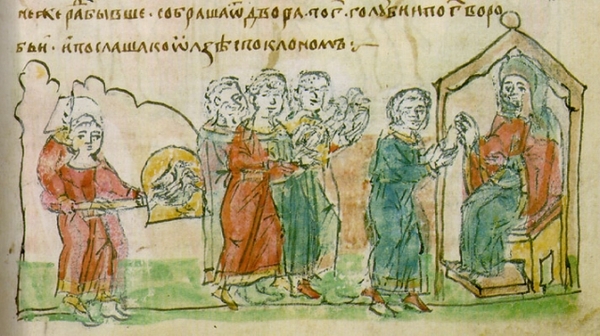 неже раⷣ бывше · собраша ѿ двора · по г҃ · голуби и по г҃ воро
бьи · и послаша ко ѡлзѣ с поклономъ